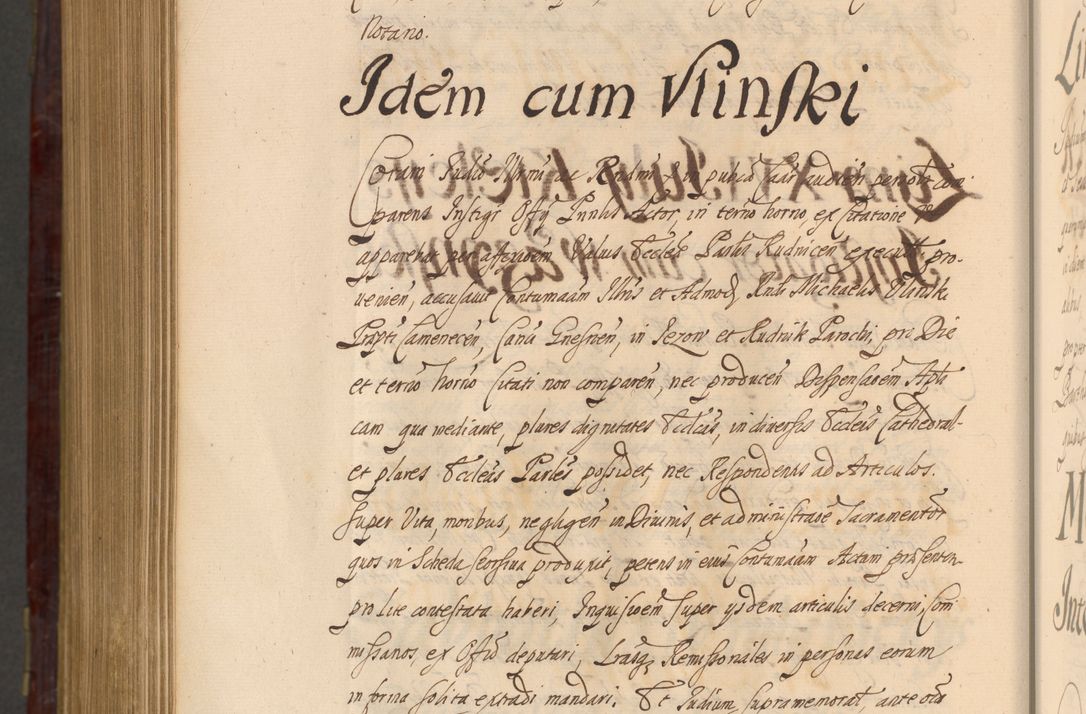 Notario.
Idem cum Vlinski
Coram Judio Illrmi ac Rndmi in publca audien personr com
parens Instigr Offy Pnnlis Actor, in termo horno, ex Citatione
apparebat per affixionem Valuis Ecclae Parlis Rudnicen execut pro-
venien, accusavit Contumaam Illris et Admod Rndi Michaelis Vlinski
Prapti Camenecen, Canci Gnesnen, in Jezow et Rudnik Parochi, pro Die
et termo horno Citati non comparen, nec producen Dispensaoem Apli
cam qua mediante, plures dignitates Ecclcas, in diversis Eccleis Cathedral-
et plures Eccleas Parles possidet, nec Respondenas ad Articulos.
super Vita, moribus, negligen in Divinis, et administraoe Sacramentor
quos in Scheda seorsiva produxit, petens in eius Contumaam Actam præsentem
pro lite contestata haberi, Inquisioem super ysdem articulis decerni, Com
missanos, ex Offo deputari, Lrasq Remissoriales in personas eorum
in forma solita extradi mandari. Et Judium, supramemorat, ante ocu